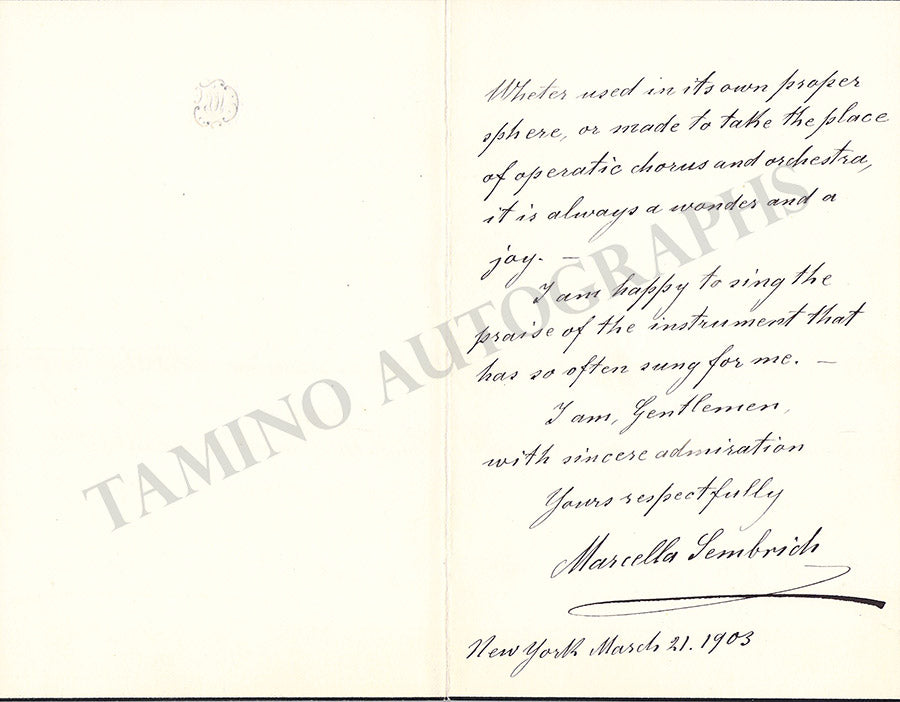 Wheter used in its own proper
sphere, or made to take the place
of operatic chorus and orchestra,
it is always a wonder and a
joy. —
I am happy to sing the
praise of the instrument that
has so often sung for me. —
I am, Gentlemen,
with sincere admiration
Yours respectfully
Marcella Sembrich
New York March 21. 1903
TAMINO AUTOGRAPHS